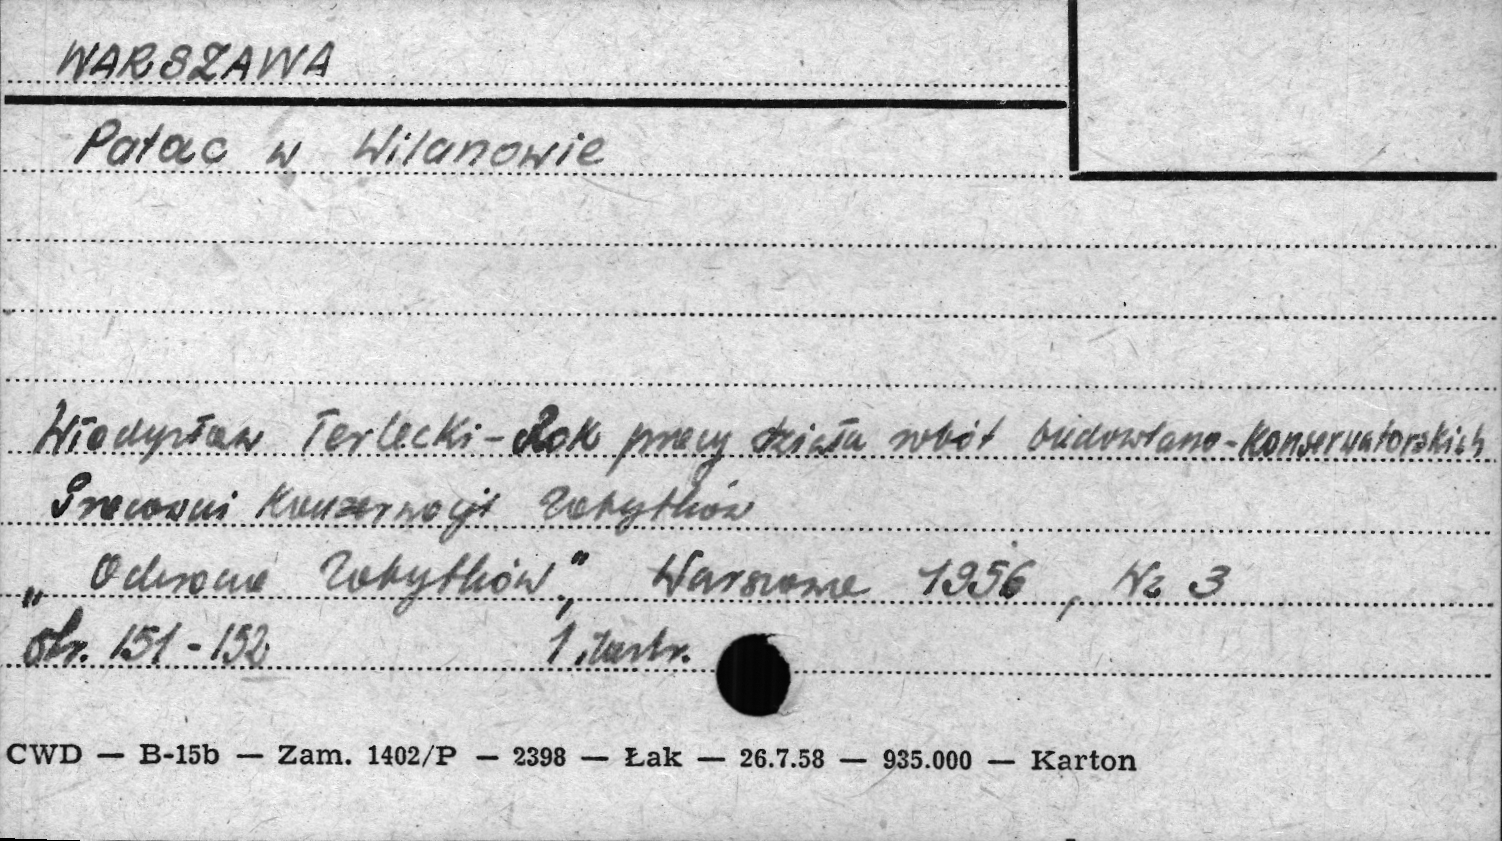 WARSZAWA
Pałac w Wilanowie
Władysław Terlecki - Rok pracy działu robót budowlano-konserwatorskich
Pracowni Konserwacji Zabytków
„Ochrona Zabytków", Warszawa 1956, Nr 3
str. 151-152 1 ilustr.
CWD — B-15b — Zam. 1402/P — 2398 — Łak — 26.7.58 — 935.000 — Karton